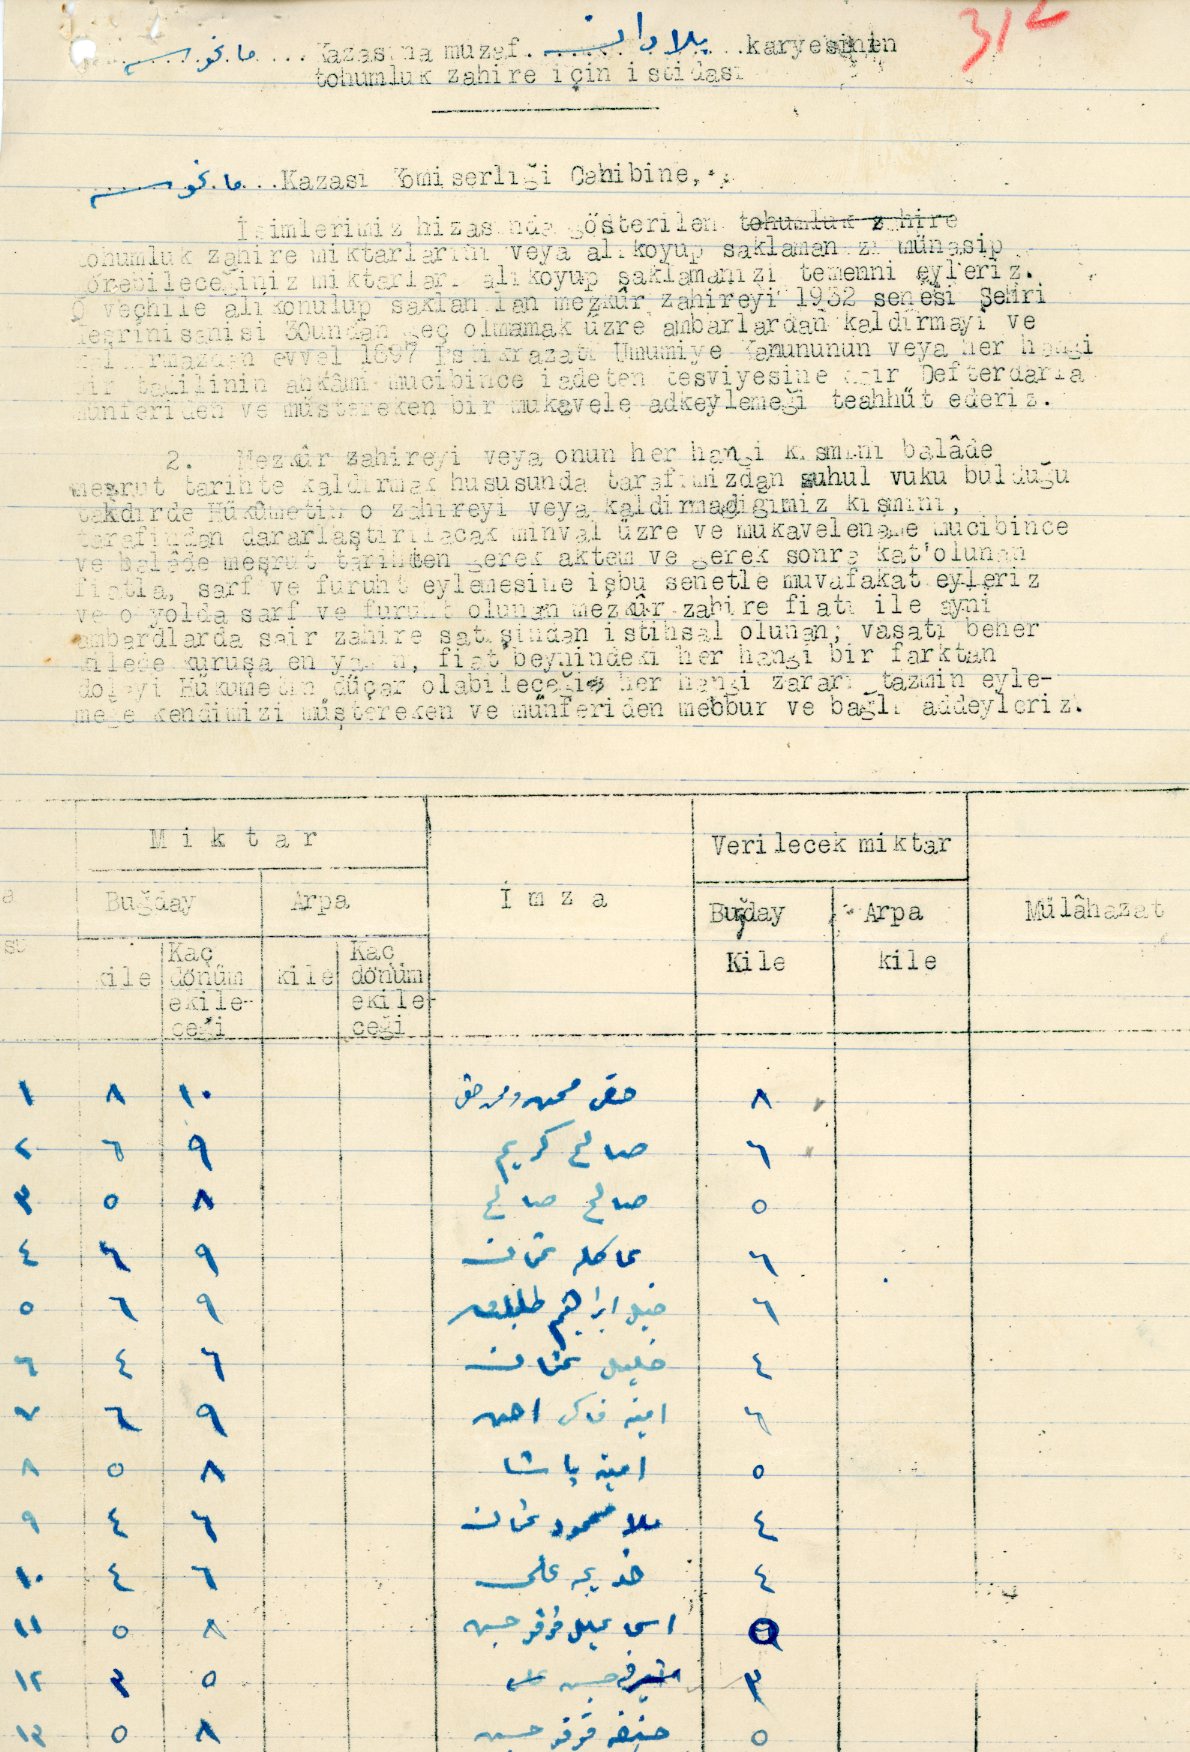 312
ماغوسه .... Kazasına muzaf ..... karyesinin
tohumluk zahire için istidası
ماغوسه ... Kazası Komiserliği Canibine,
İsimlerimiz hizasında gösterilen tohumluk zahire
tohumluk zahire miktarlarını veya alıkoyup saklamanızı münasip
görebileceğiniz miktarları alıkoyup saklamanızı temenni eyleriz.
O veçhile alıkonulup saklanılan mezkûr zahireyi 1932 senesi Şehri
Teşrinisanisi 30undan geç olmamak üzre ambarlardan kaldırmayi ve
kaldırmazdan evvel 1897 İstikrazatı Umumiye Kanununun veya her hangi
bir tadilinin ahkâmı mucibince iadeten tesviyesine dair Defterdarla
münferiden ve müştereken bir mukavele adkeylemeği teahhüt ederiz.
2. Mezkûr zahireyi veya onun her hangi kısmını balâde
meşrut tarihte kaldırmak hususunda tarafımızdan suhul vuku bulduğu
takdirde Hükûmetin o zahireyi veya kaldirmadiğimiz kısmını,
tarafından dararlaştırılacak minval üzre ve mukavelename mucibince
ve balâde meşrut tarihten gerek aktem ve gerek sonra kat'olunan
fiatla, sarf ve furuht eylemesine işbu senetle muvafakat eyleriz
ve o yolda sarf ve furuht olunan mezkûr zahire fiatı ile ayni
ambardlarda sair zahire satışından istihsal olunan, vasatı beher
kilede kuruşa en yakın, fiat beynindeki her hangi bir farktan
dolayi Hükûmetin düçar olabileceği her hangi zararı tazmin eyle-
meğe kendimizi müştereken ve münferiden mebbur ve bağlı addeyleriz.
Miktar Verilecek miktar
a Buğday Arpa İmza Buğday Arpa Mülâhazat
sı kile Kaç dönüm ekile-ceği kile Kaç dönüm ekile-ceği Kile kile
١ ٨ ١٠ ٨
٢ ٦ ٩ صالح كريم ٦
٣ ٥ ٨ صالح صالح ٥
٤ ٦ ٩ عثمان ٦
٥ ٦ ٩ خليل ابراهيم ٦
٦ ٤ ٦ خليل عثمان ٤
٧ ٦ ٩ امينه احمد ٦
٨ ٥ ٨ امينه پاشا ٥
٩ ٤ ٦ ملا محمود عثمان ٤
١٠ ٤ ٦ خديجه علي ٤
١١ ٥ ٨ حسين ٥
١٢ ٣ ٥ حسين علي ٣
١٣ ٥ ٨ حسين ٥